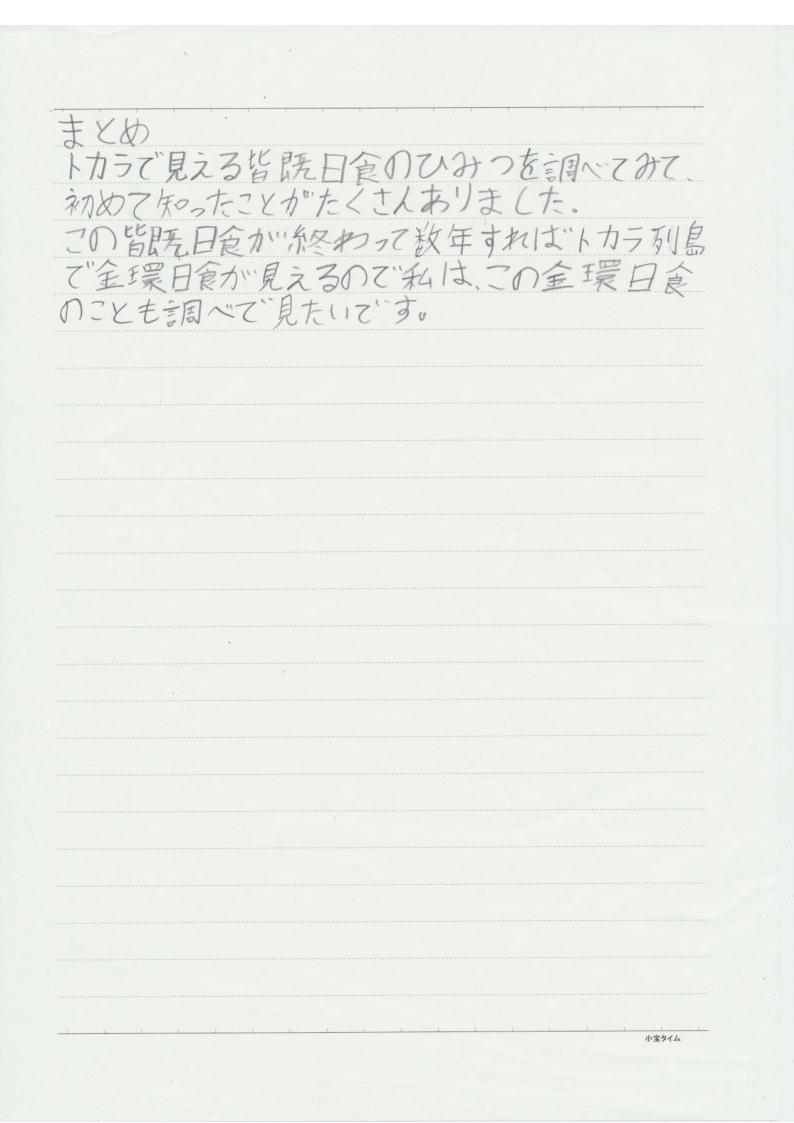 まとめ
トカラで見える皆既日食のひみつを調べてみて、
初めて知ったことがたくさんありました。
この皆既日食が終わって数年すればトカラ列島
で金環日食が見えるので私は、この金環日食
のことも調べで見たいです。
小宝タイム